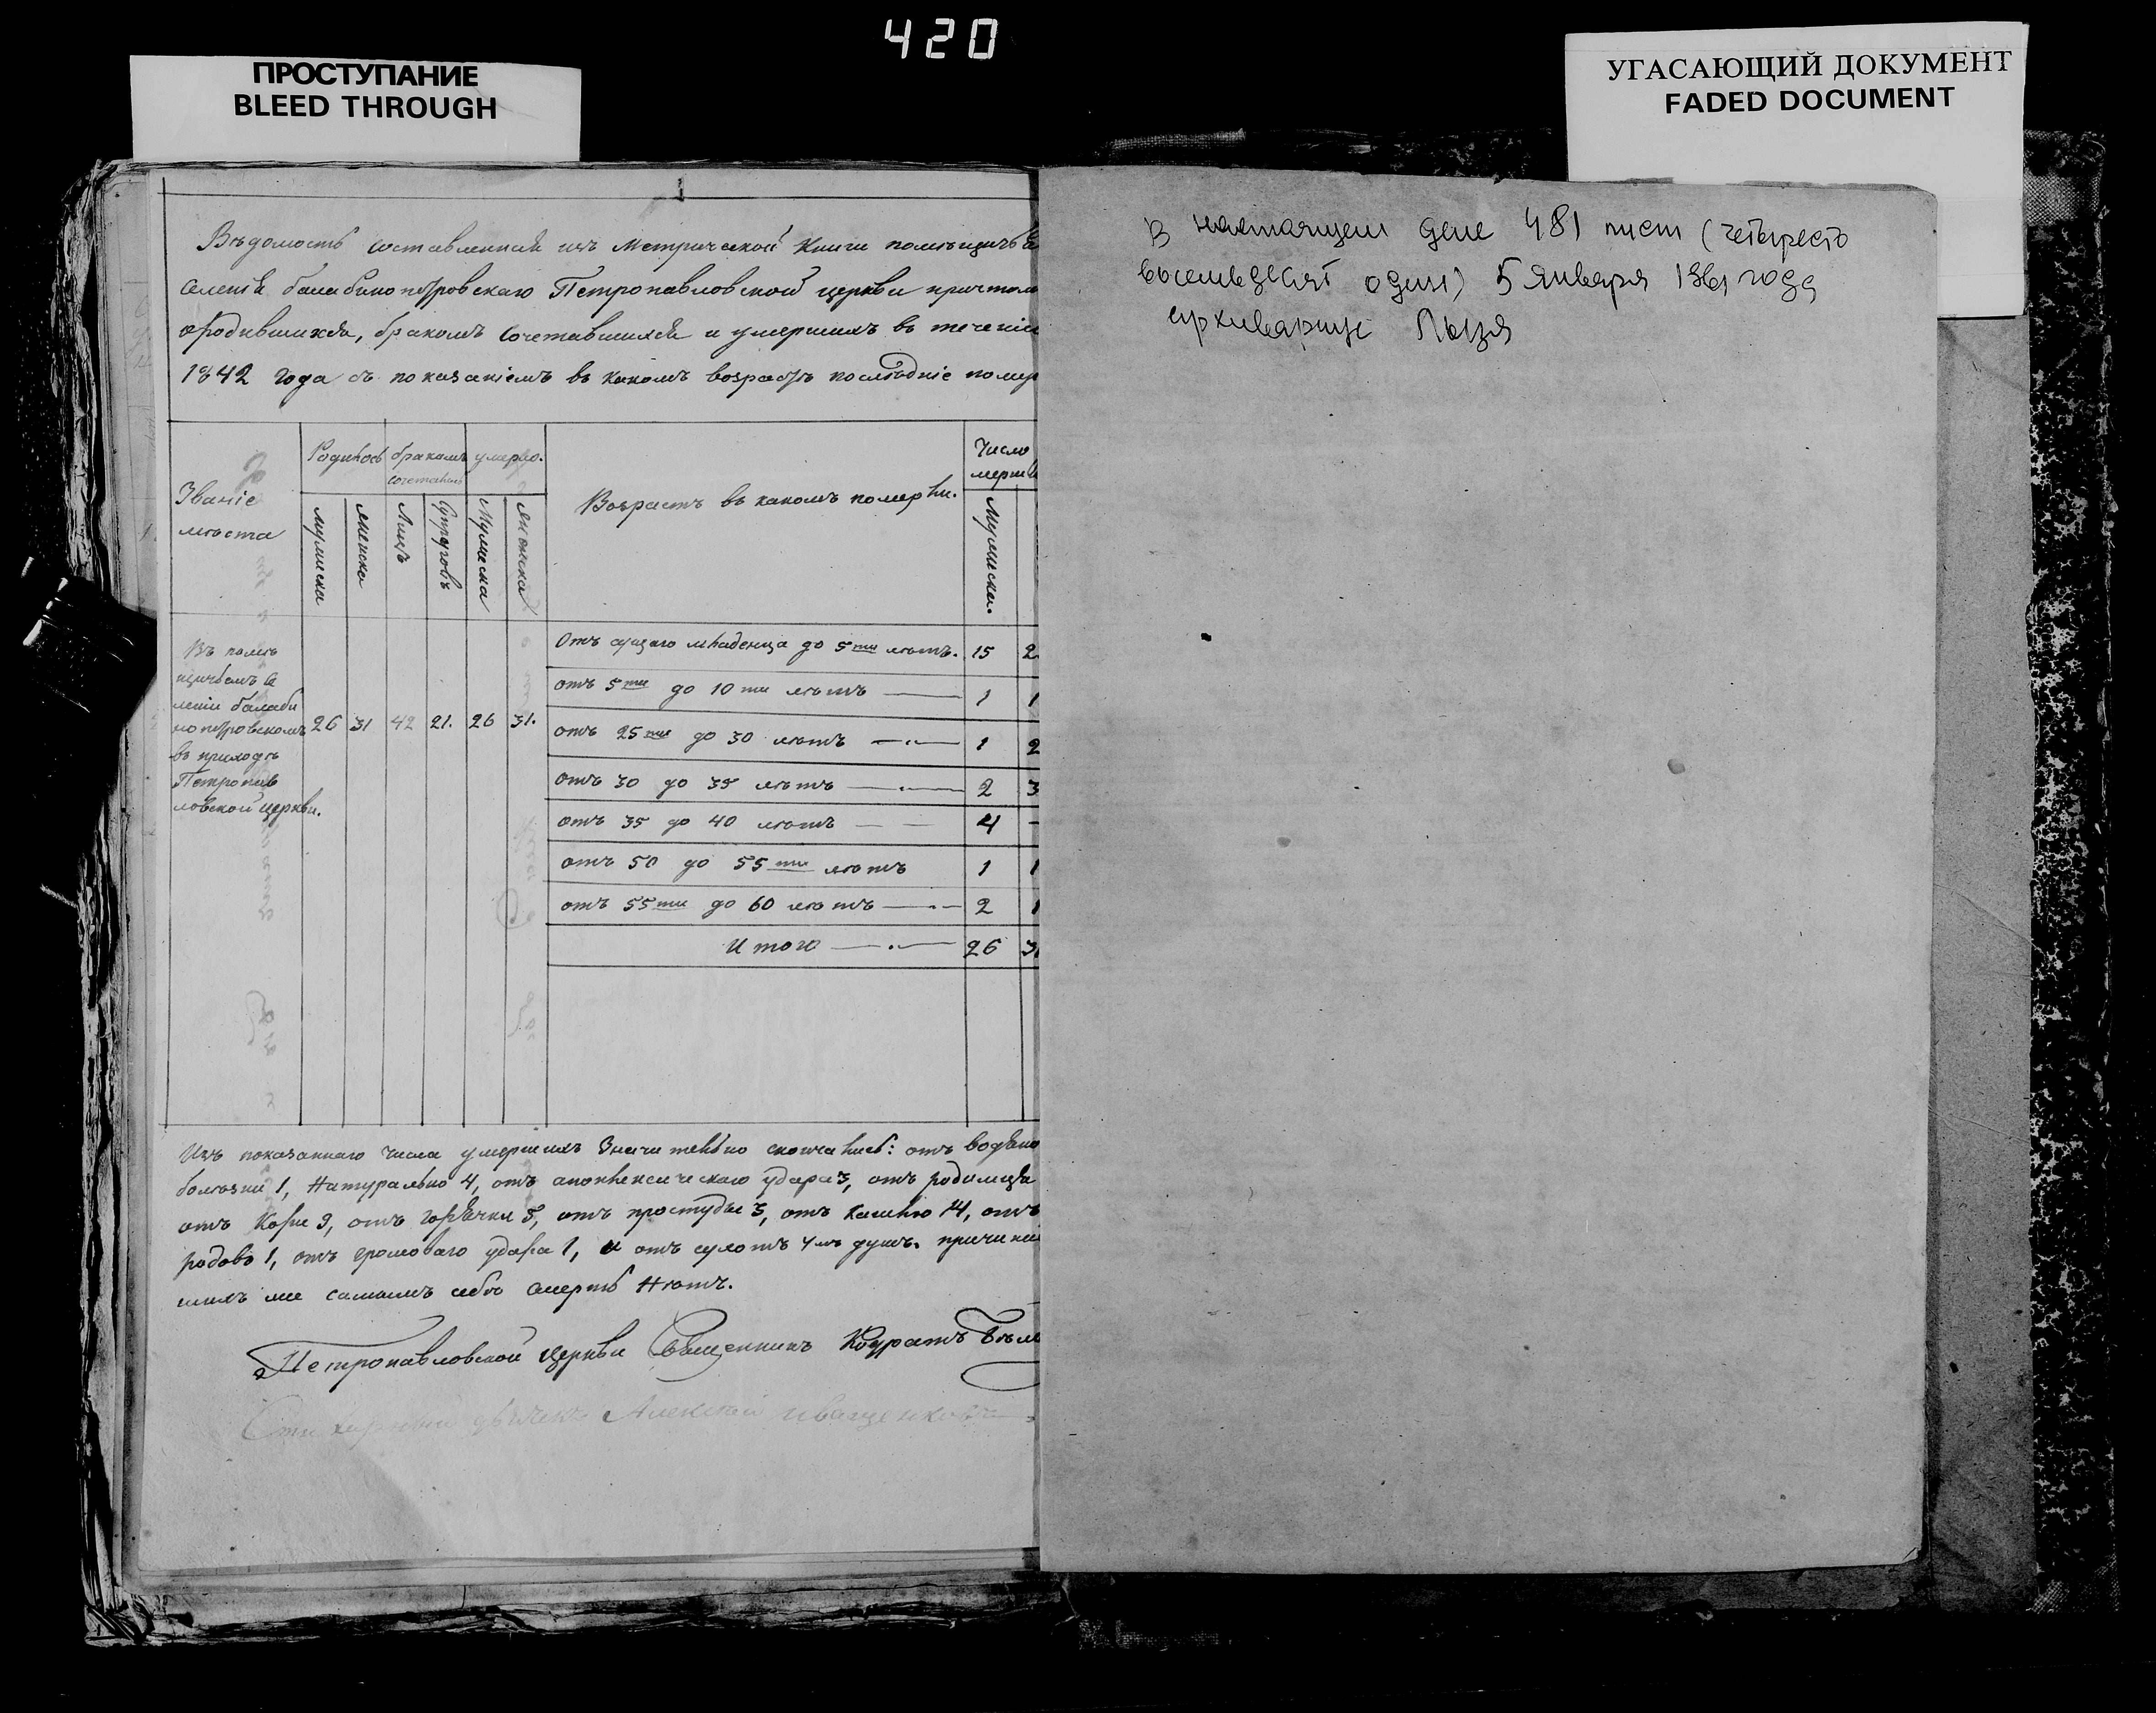 420
ПРОСТУПАНИЕ
BLEED THROUGH
УГАСАЮЩИЙ ДОКУМЕНТ
FADED DOCUMENT
Вѣдомость составленная изъ Метрической Книги помѣщичьѧ
селенія балабинопетровскаго Петропавловской церкви причтомъ
ородившихся, бракомъ сочетавшихся и умершихъ въ теченіи
1842 года съ показаніемъ въ какомъ возрастѣ послѣдніе помер
Званіе мѣста
Родилось
бракомъ сочетались
умерло.
Возрастъ въ какомъ померли.
Число мершв
мужеска
женска
Лицъ
Супруговъ
Мужеска
женска
Мужеска.
Въ помѣ
щичьемъ се
леніи балаби
нопетровскомъ
въ приходѣ
Петропав
ловской церкви.
26 31 42 21. 26 31.
Отъ сущаго младенца до 5ти лѣтъ. 15 2
отъ 5ти до 10ти лѣтъ 1 1
отъ 25ти до 30 лѣтъ 1 2
отъ 30 до 35 лѣтъ 2 3
отъ 35 до 40 лѣтъ 4 -
отъ 50 до 55ти лѣтъ 1 1
отъ 55ти до 60 лѣтъ 2 1
Итого 26 31
Изъ показаннаго числа умершихъ Значительно скончались: отъ водяно
болѣзни 1, Натурально 4, отъ апоплексическаго удара 3, отъ родимца
отъ Кори 9, отъ горячки 5, отъ простуды 3, отъ кашлю 14, отъ
родовъ 1, отъ громоваго удара 1, и отъ сухотъ 4 душъ. причини
шихъ же самимъ себѣ смерть Нѣтъ.
Петропавловской Церкви Священникъ Кодратъ Бѣл
Стихарный дьячекъ Алексѣй иващенковъ
В настоящем деле 481 лист (четыреста
восемьдесят один) 5 января 1961 года
архивариус Лызя